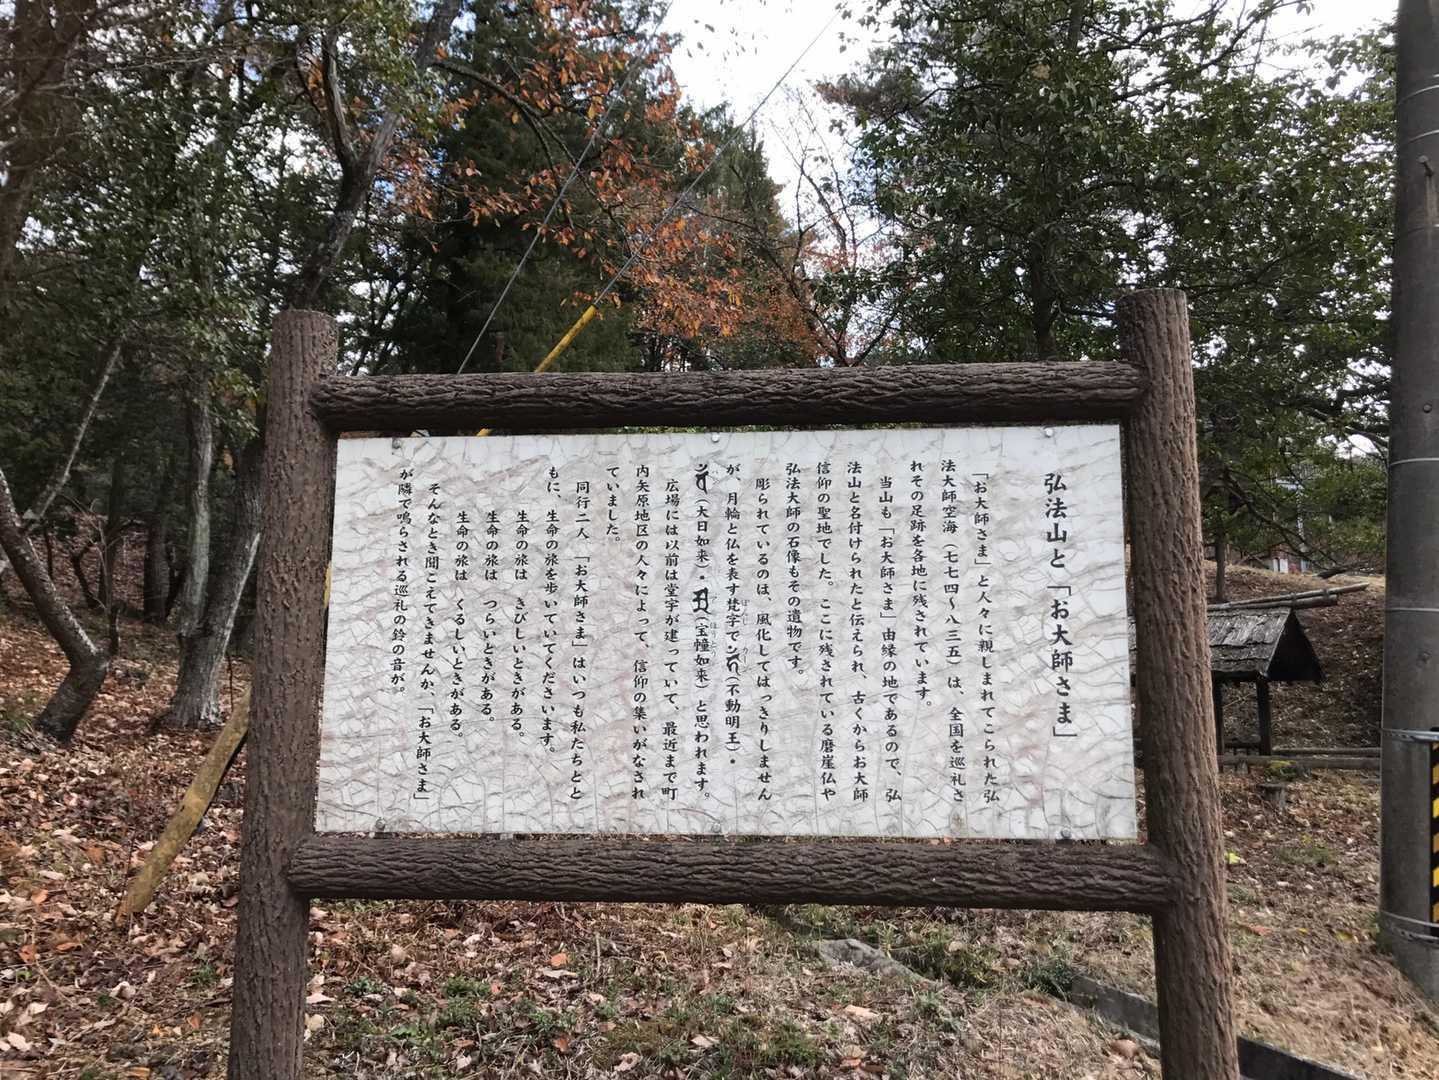 弘法山と「お大師さま」
「お大師さま」と人々に親しまれてこられた弘
法大師空海（七七四〜八三五）は、全国を巡礼さ
れその足跡を各地に残されています。
当山も「お大師さま」由縁の地であるので、弘
法山と名付けられたと伝えられ、古くからお大師
信仰の聖地でした。ここに残されている磨崖仏や
弘法大師の石像もその遺物です。
彫られているのは、風化してはっきりしません
が、月輪と仏を表す梵字で（不動明王）・
（大日如来）・（宝幢如来）と思われます。
広場には以前は堂宇が建っていて、最近まで町
内矢原地区の人々によって、信仰の集いがなされ
ていました。
同行二人「お大師さま」はいつも私たちとと
もに、生命の旅を歩いていてくださいます。
生命の旅は　きびしいときがある。
生命の旅は　つらいときがある。
生命の旅は　くるしいときがある。
そんなとき聞こえてきませんか、「お大師さま」
が隣で鳴らされる巡礼の鈴の音が。